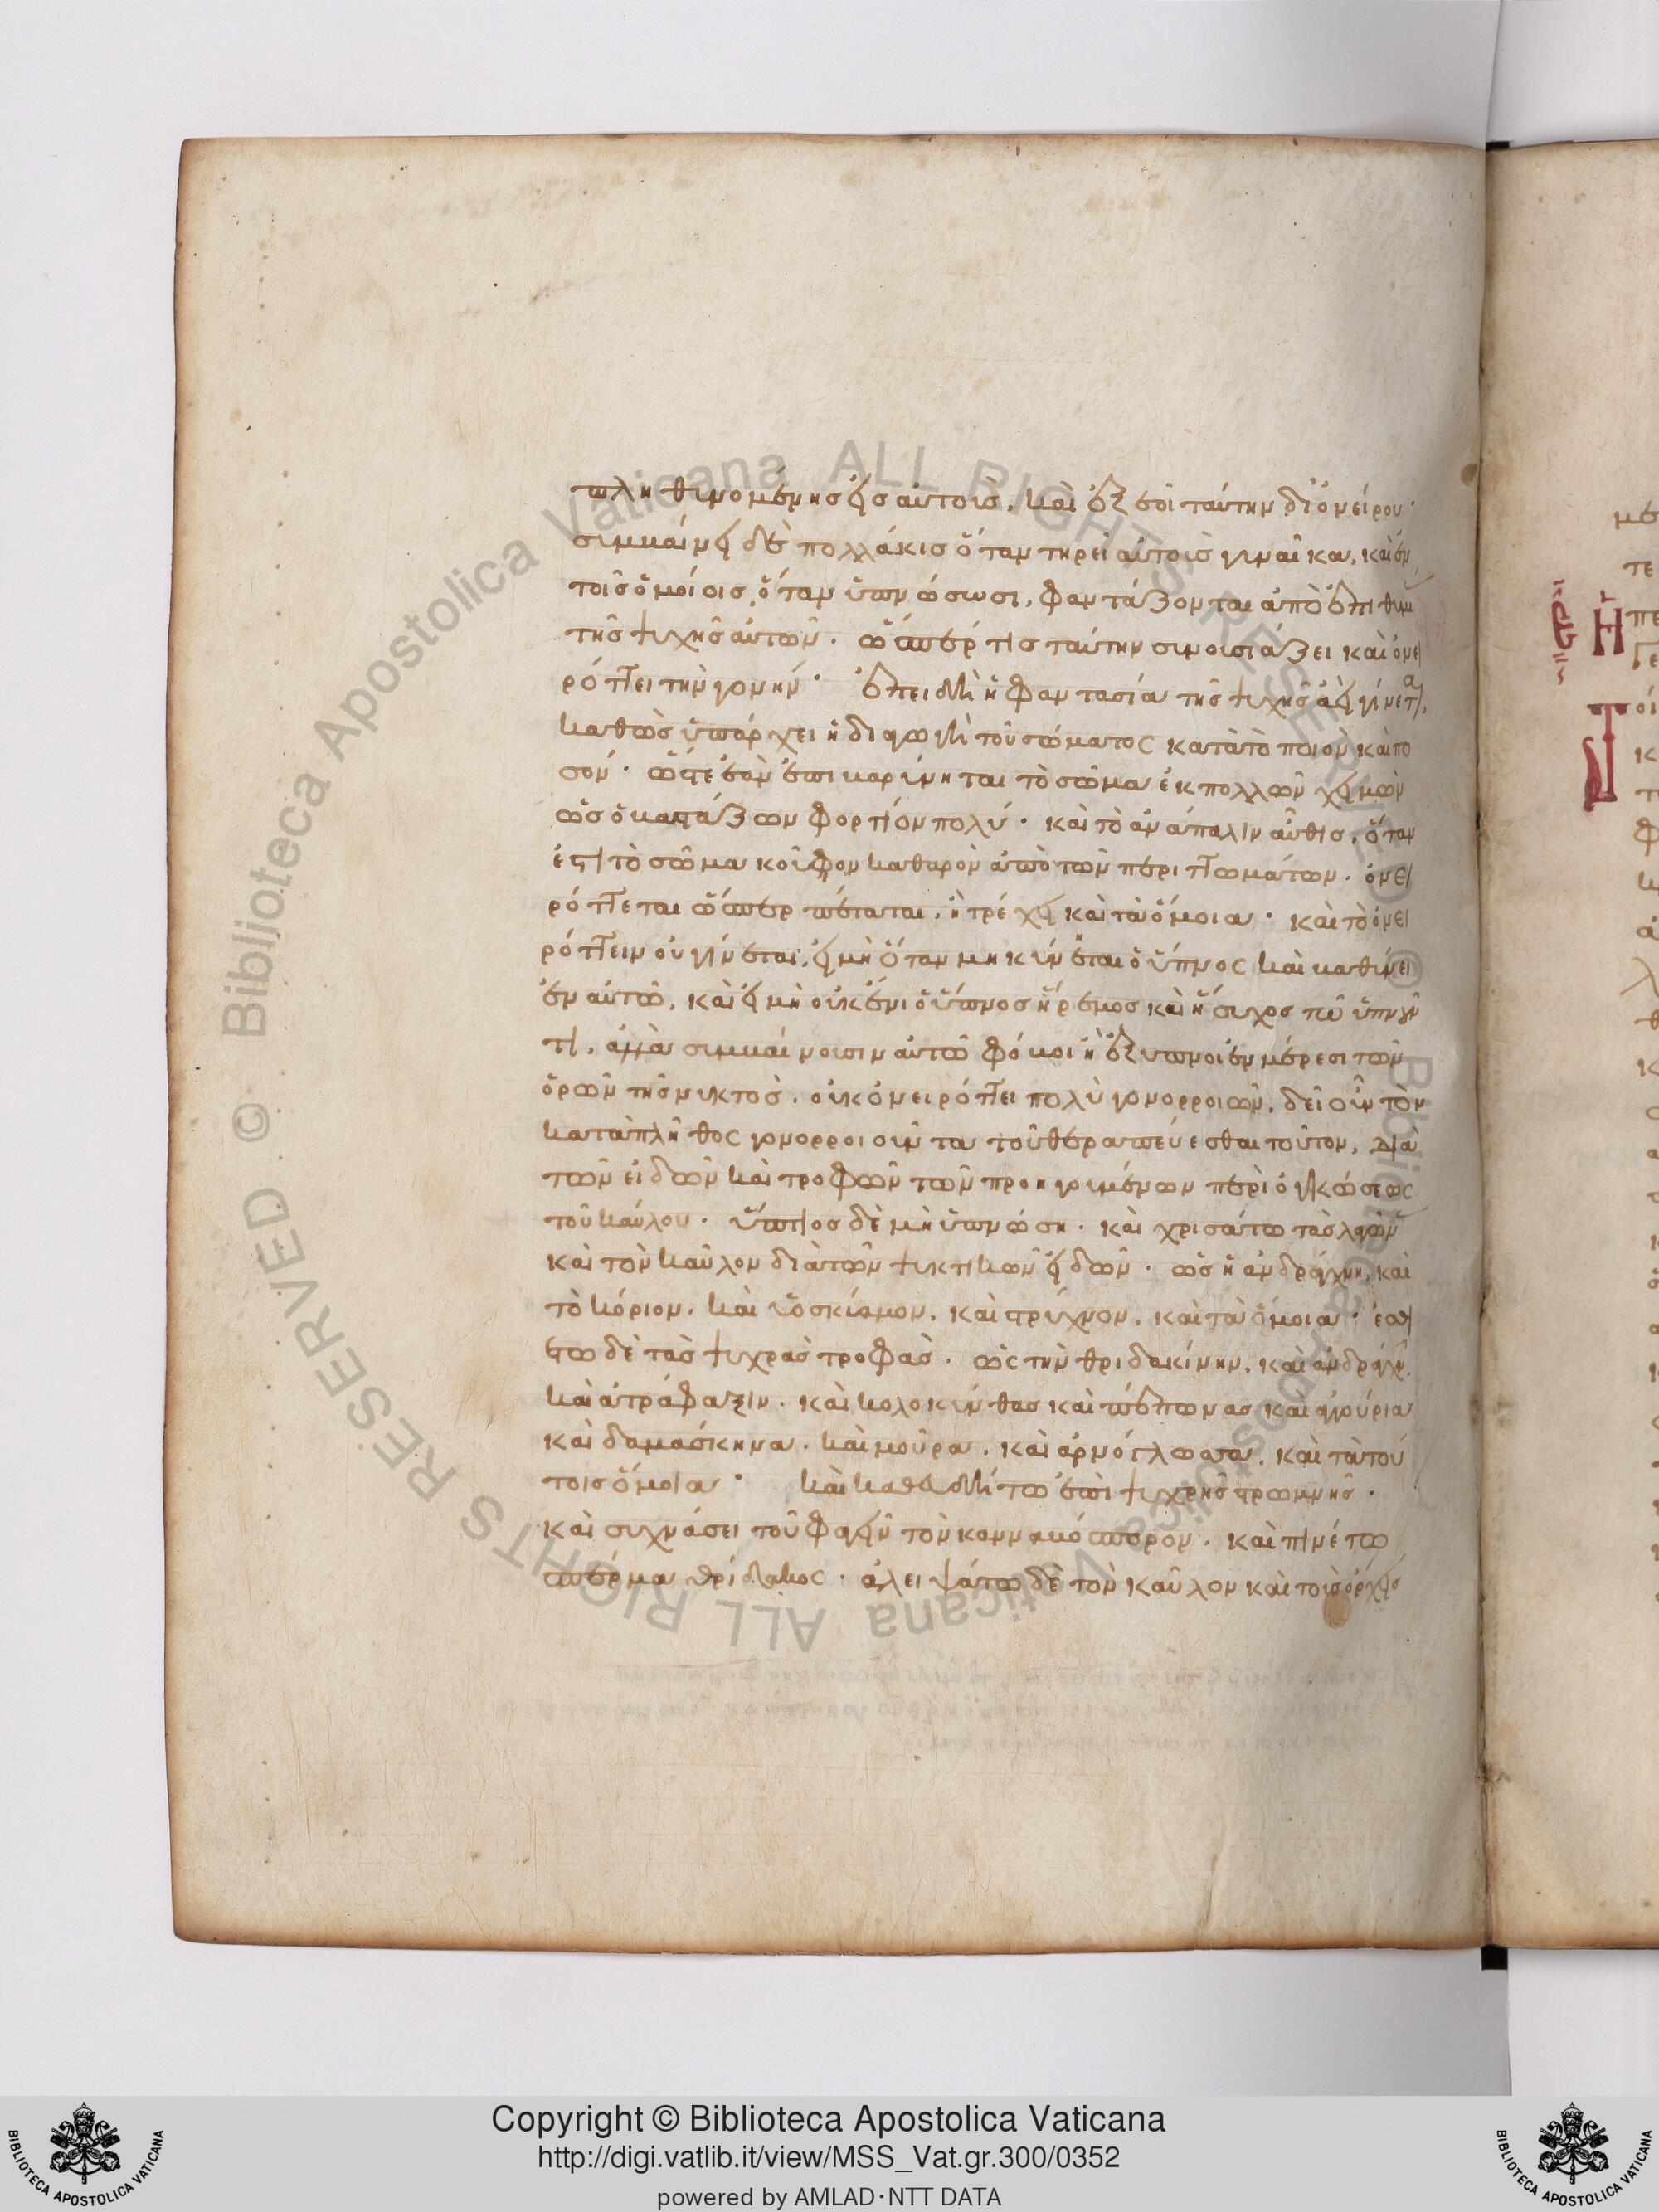 πληθυνομένης εἰς αὐτοὺς, καὶ ἐξεσοῖ ταύτην δι' ὀνείρου·
συμβαίνει δὲ πολλάκις ὅταν τηρεῖ αὐτοῖς γυναῖκα, καὶ ἐν
τοῖς ὁμοίοις, ὅταν ὑπνώσωσι, φαντάζονται ἀπὸ ἐπιθυμ
τῆς ψυχῆς αὐτῶν. ὥσπερ τις ταύτην συνουσιάζει καὶ ὀνει
ρόττει τὴν γονήν· ἐπειδὴ ἡ φαντασία τῆς ψυχῆς ἀεὶ γίνεται,
καθὼς ὑπάρχει ἡ διαγωγὴ τοῦ σώματος κατὰ τὸ ποιὸν καὶ πο
σόν· ὥστε ἐὰν ἐπικαρύνηται τὸ σῶμα ἐκ πολλῶν χυμῶν
ὡς ὁ βαστάζων φορτίον πολύ· καὶ τὸ ἀνάπαλιν αὖθις, ὅταν
ἐστὶ τὸ σῶμα κοῦφον καθαρὸν ἀπὸ τῶν περιττωμάτων. ὀνει
ρόττεται ὥσπερ πέταται, ἢ τρέχει καὶ τὰ ὅμοια· καὶ τὸ ὀνει
ρόττειν οὐ γίνεται, εἰ μὴ ὅταν μηκύνεται ὁ ὕπνος καὶ βαθύνει
ἐν αὐτῶ, καὶ εἰ μὴ οὐκ ἔνι ὁ ὕπνος ἤρεμος καὶ ἥσυχος τῶ ὑπνοῦν
τι, ἀλλὰ συμβαίνουσιν αὐτῶ φόβοι ἢ ἐξυπνοι ἐν μέρεσι τῶν
ὁρῶν τῆς νυκτὸς. οὐκ ὀνειρόττει πολὺ γονορροιῶν, δεῖ οὖν τὸν
κατὰ πλῆθος γονορροιοῦντα τοῦ θεραπεύεσθαι τοῦτον, διὰ
τῶν εἰδῶν καὶ τροφῶν τῶν προηγουμένων περὶ ὀγκώσεως
τοῦ καύλου. ὕπτιος δὲ μὴ ὑπνώση. καὶ χρισάτω τὰς λαγῶν
καὶ τὸν καῦλον διὰ τῶν ψυκτικῶν εἰδῶν· ὡς ἡ ἀνδράχνη, καὶ
τὸ κόριον, καὶ ὑοσκίαμον, καὶ στρύχνον, καὶ τὰ ὅμοια· ἐσθι
έτω δὲ τὰς ψυχρὰς τροφὰς. ὡς τὴν θριδακίνην, καὶ ἀνδράχν
καὶ ἀτράφαξιν. καὶ κολοκύνθας καὶ πέπωνας καὶ ἀγούρια
καὶ δαμάσκηνα. καὶ μοῦρα. καὶ ἀρνόγλωσσα, καὶ τὰ τού
τοις ὅμοια· καὶ καθευδήτω ἐπὶ ψυχρῆς στρωμνῆς.
καὶ συχνάσει τοῦ φαγεῖν τὸν κανναβόσπορον. καὶ πινέτω
σπέρμα θρίδακος. ἀλειψάτω δὲ τὸν καῦλον καὶ τοὺς ὄρχεις
Copyright © Biblioteca Apostolica Vaticana
http://digi.vatlib.it/view/MSS_Vat.gr.300/0352
powered by AMLAD·NTT DATA
BIBLIOTECA APOSTOLICA VATICANA
BIBLIOTECA APOSTOLICA VATICANA
© Biblioteca Apostolica Vaticana ALL RIGHTS RESERVED
© Biblioteca Apostolica Vaticana ALL RIGHTS RESERVED